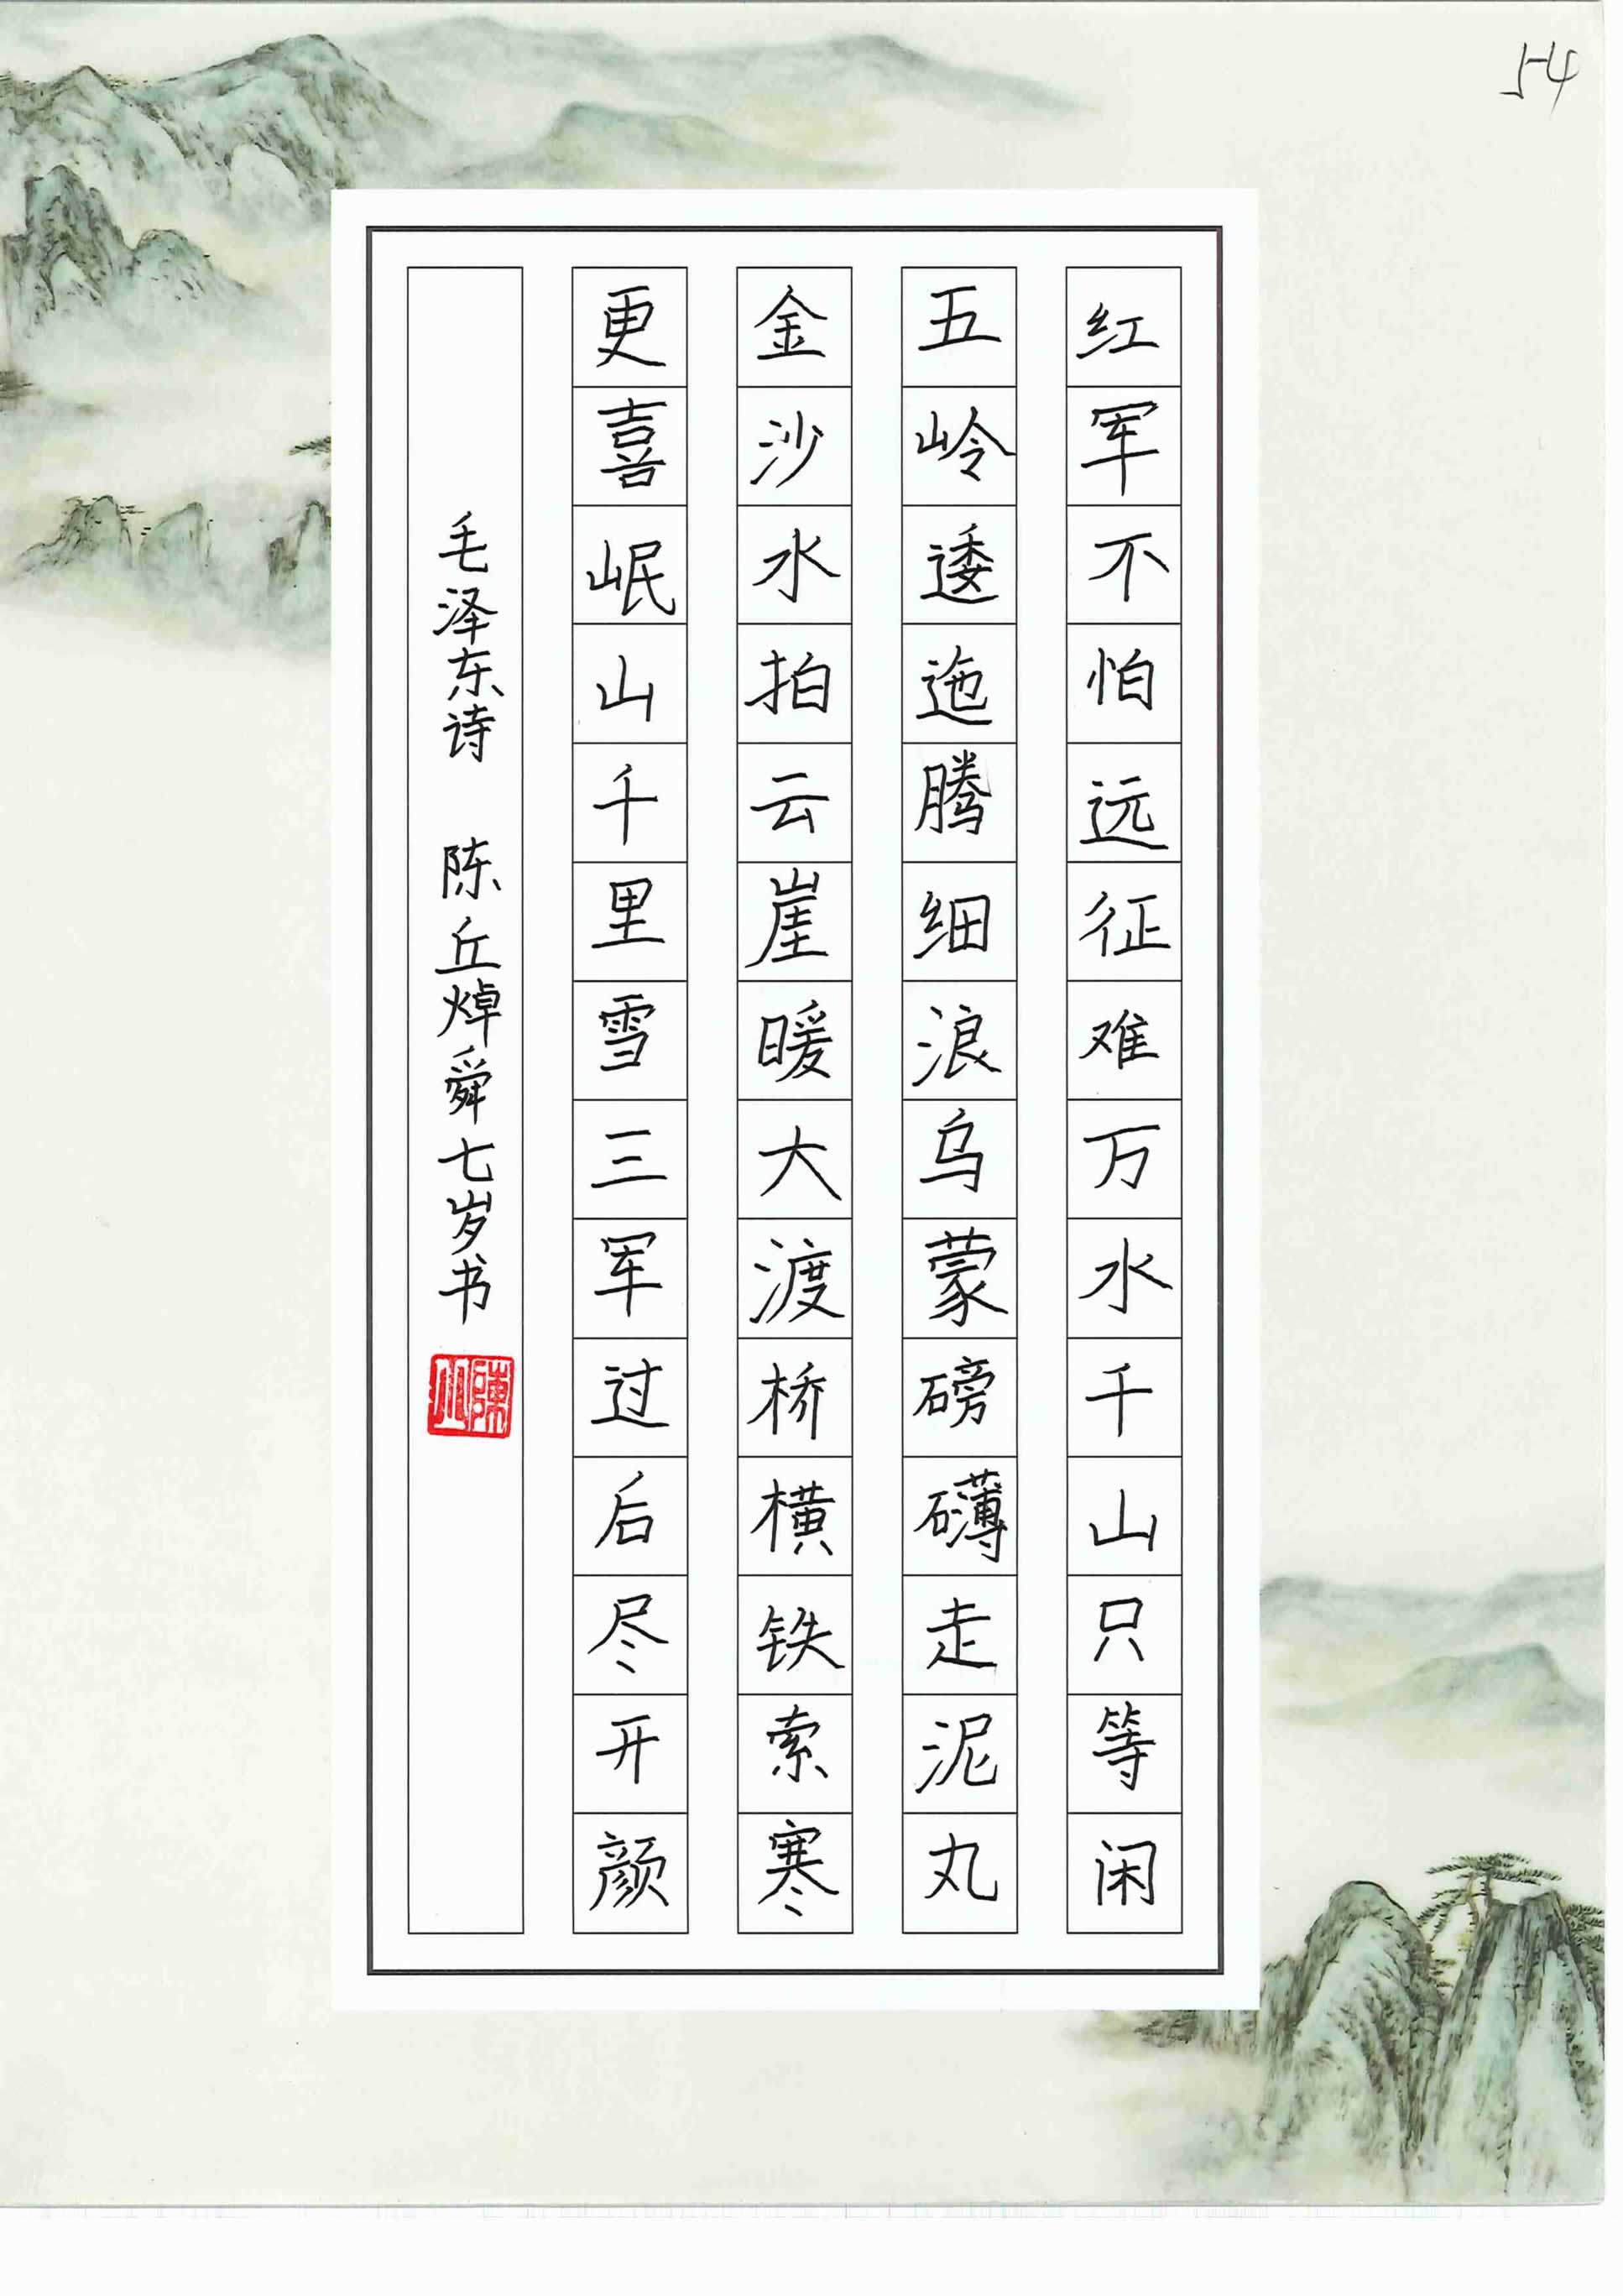 54
红军不怕远征难万水千山只等闲
五岭逶迤腾细浪乌蒙磅礴走泥丸
金沙水拍云崖暖大渡桥横铁索寒
更喜岷山千里雪三军过后尽开颜
毛泽东诗 陈丘焯舜七岁书
陳丘